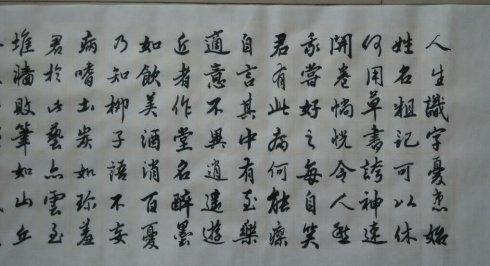 人生識字憂患始
姓名粗記可以休
何用草書誇神速
開卷惝怳令人愁
我嘗好之每自笑
君有此病何能瘳
自言其中有至樂
適意不異逍遙遊
近者作堂名醉墨
如飲美酒消百憂
乃知柳子語不妄
病嗜土炭如珍羞
君於此藝亦云至
堆牆敗筆如山丘